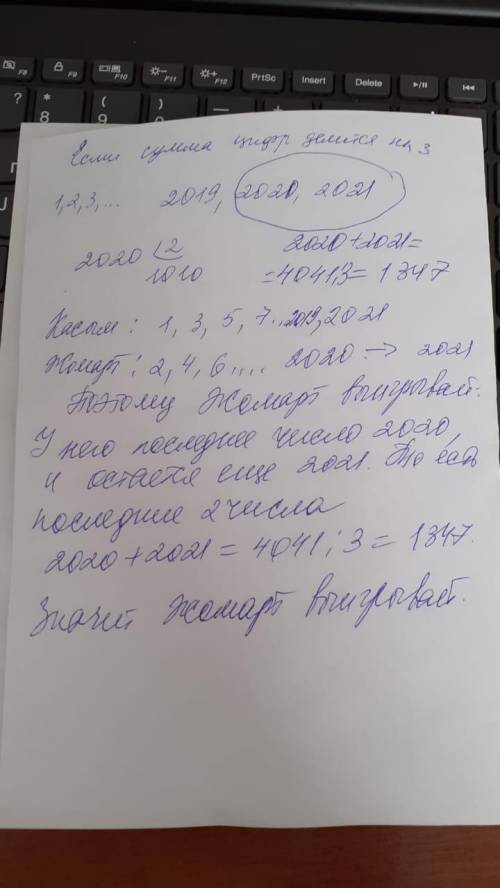 F8 F9 F10 F11 F12 PrtSc Insert Delete
? * 8 ( 9 ) —
Если сумма цифр делится на 3
1, 2, 3, ... 2019, 2020, 2021
2020 | 2
1010
2020+2021=
=4041:3=1347
Касым: 1, 3, 5, 7..2019, 2021
Жомарт: 2, 4, 6.... 2020 → 2021
Поэтому Жомарт выигрывает.
У него последнее число 2020,
и остается еще 2021. То есть
последние 2 числа
2020+2021=4041:3=1347.
Значит Жомарт выигрывает.